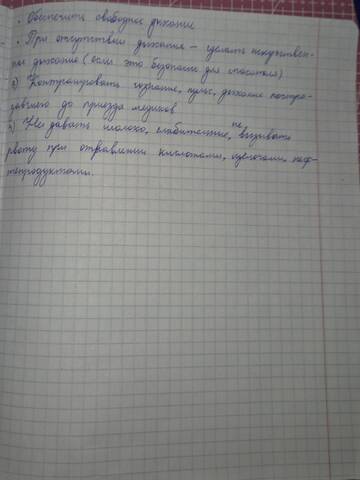 • Обеспечить свободное дыхание
• При отсутствии дыхания – сделать искусствен-
ное дыхание (если это безопасно для спасателя)
3) Контролировать сознание, пульс, дыхание постра-
давшего до приезда медиков
4) Не давать молоко, слабительные, не вызывать
рвоту при отравлении кислотами, щелочами, неф-
тепродуктами.